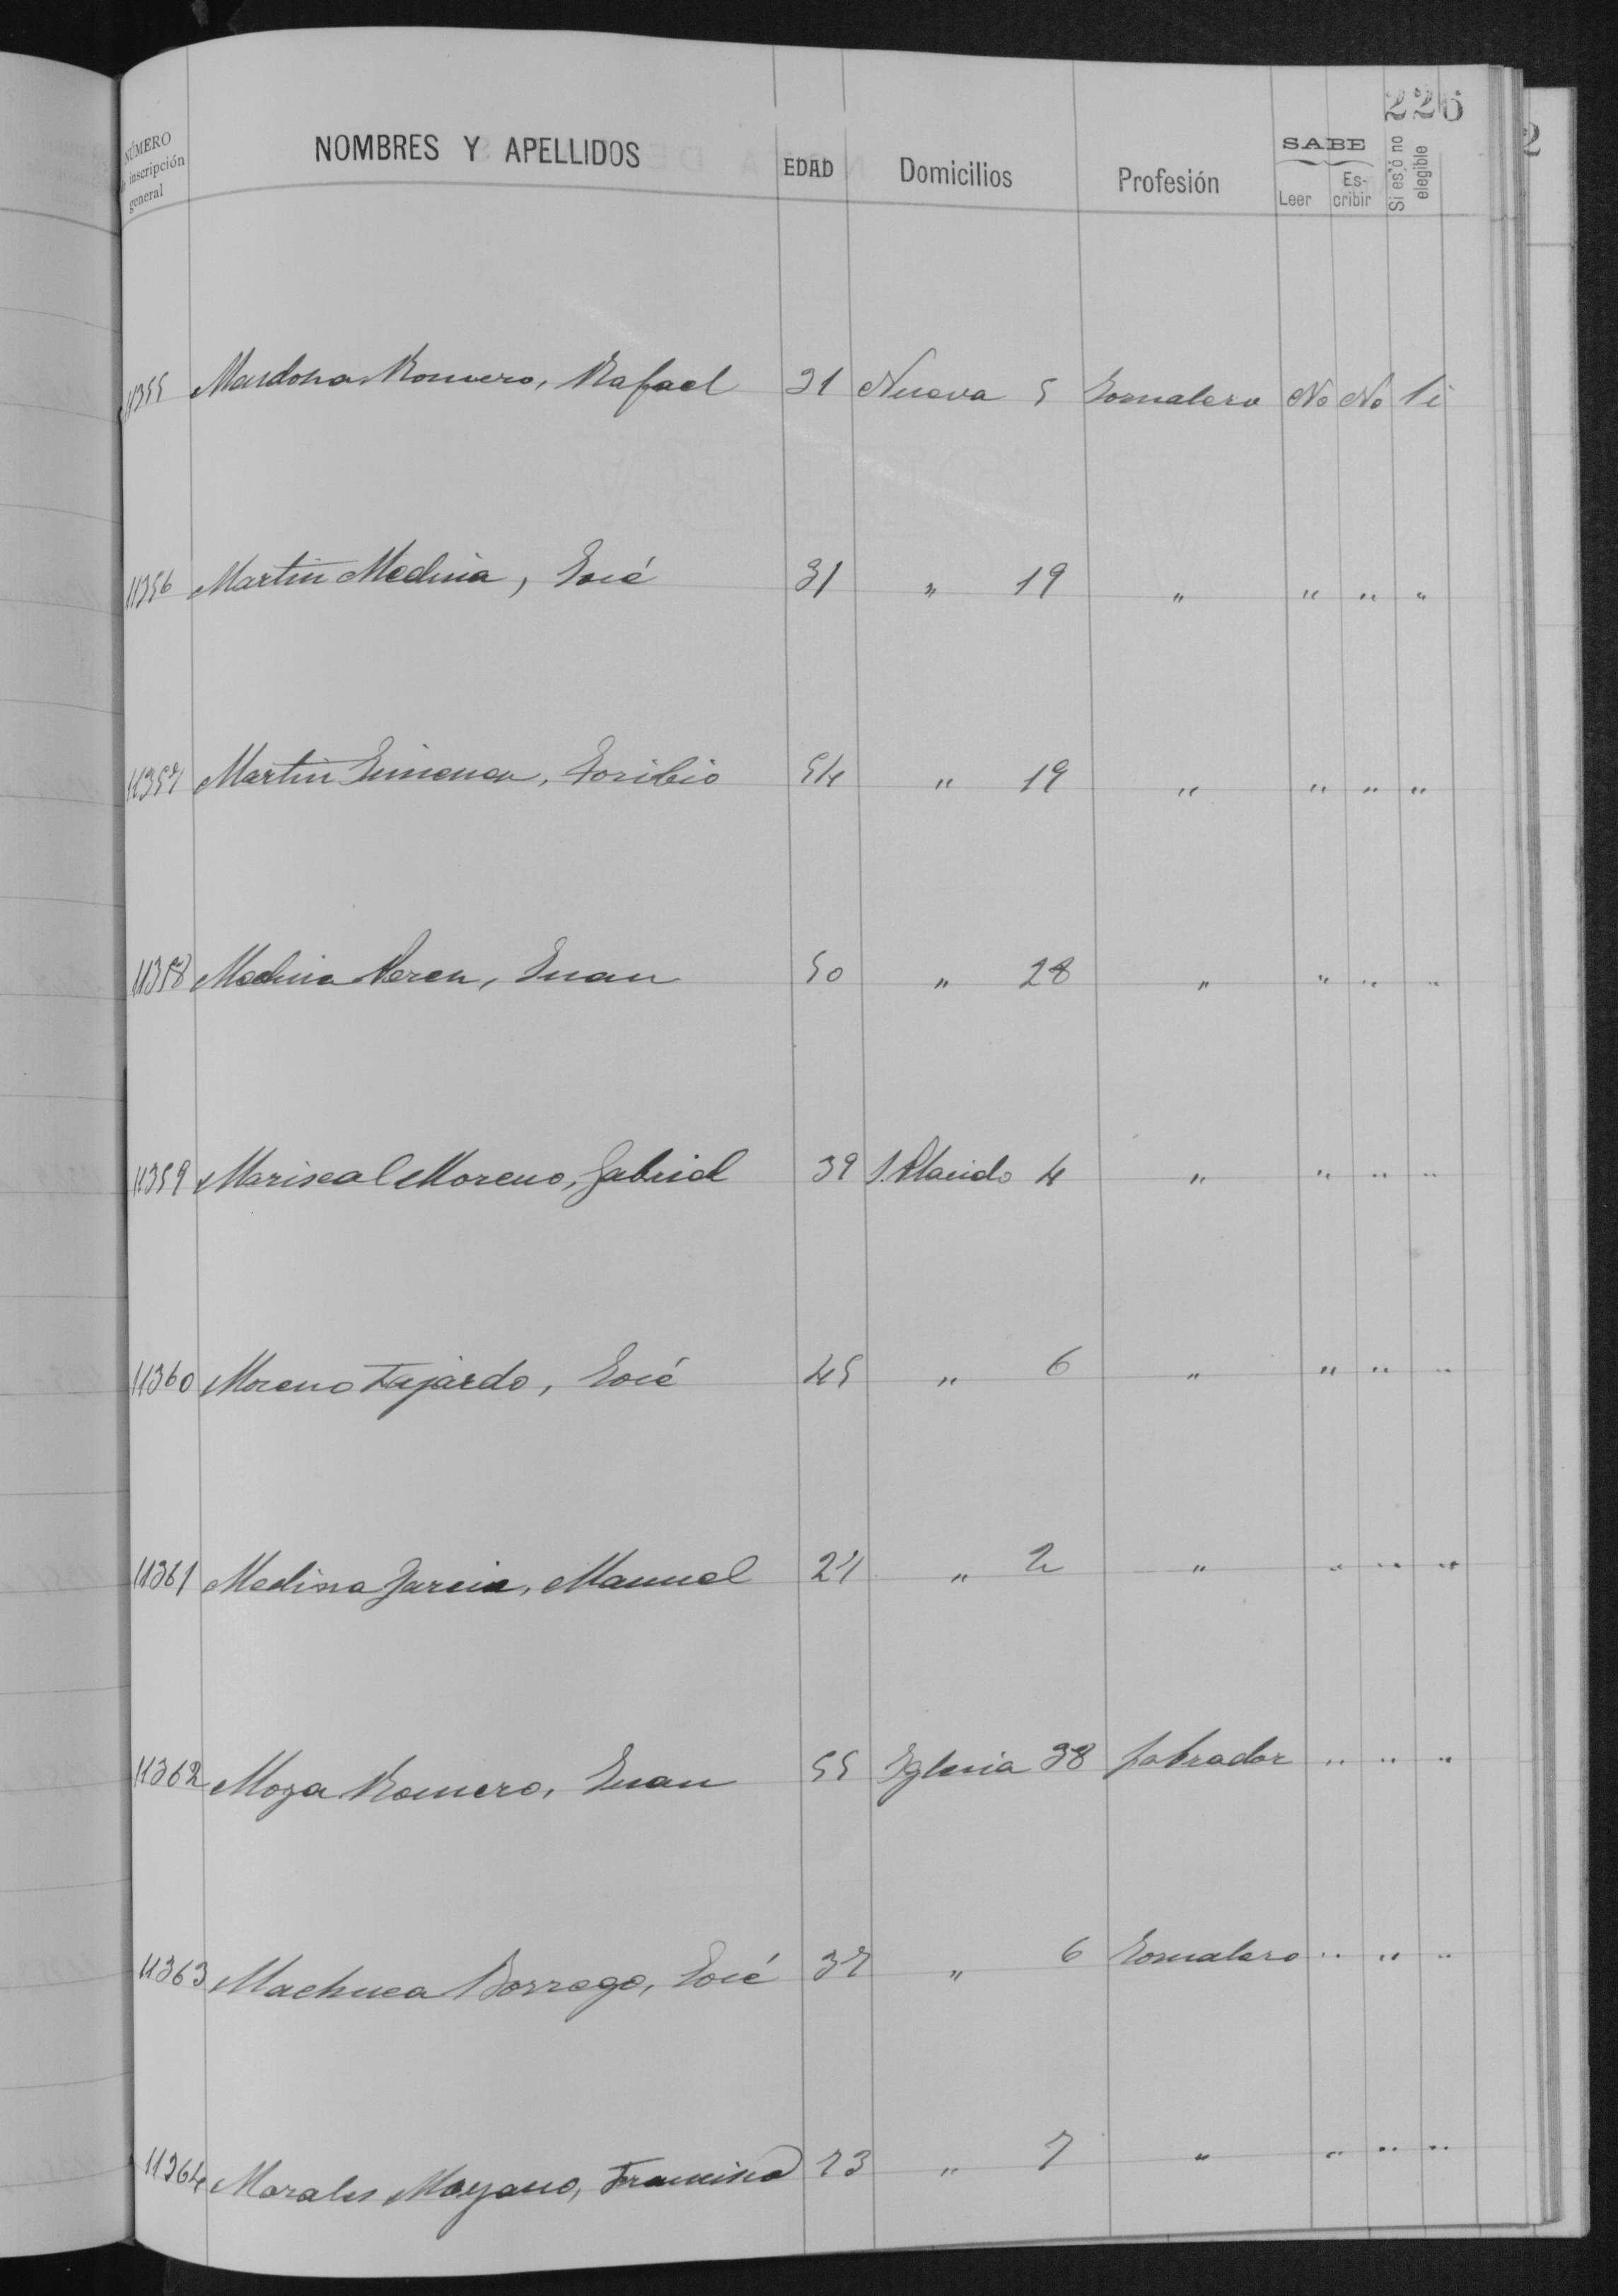 226
NÚMERO de inscripción general NOMBRES Y APELLIDOS EDAD Domicilios Profesión SABE Leer Es-cribir Si es ó no elegible
11355 Romero, Rafael 31 Nueva 5 Jornalero No No Si
11356 Martin Medina, José 31 " 19 " " " "
11357 Martin Jimenez, Toribio 54 " 19 " " " "
11358 Medina Perez, Juan 50 " 28 " " " "
11359 Mariscal Moreno, Gabriel 39 S. Placido 4 " " " "
11360 Moreno Fajardo, José 45 " 6 " " " "
11361 Medina Garcia, Manuel " 2 " " " "
11362 Moza Romero, Juan 55 Yglesia 38 Labrador " " "
11363 Machuca Borrego, José 37 " 6 Jornalero " " "
11364 Morales Moyano, Francisco 73 " 7 " " " "